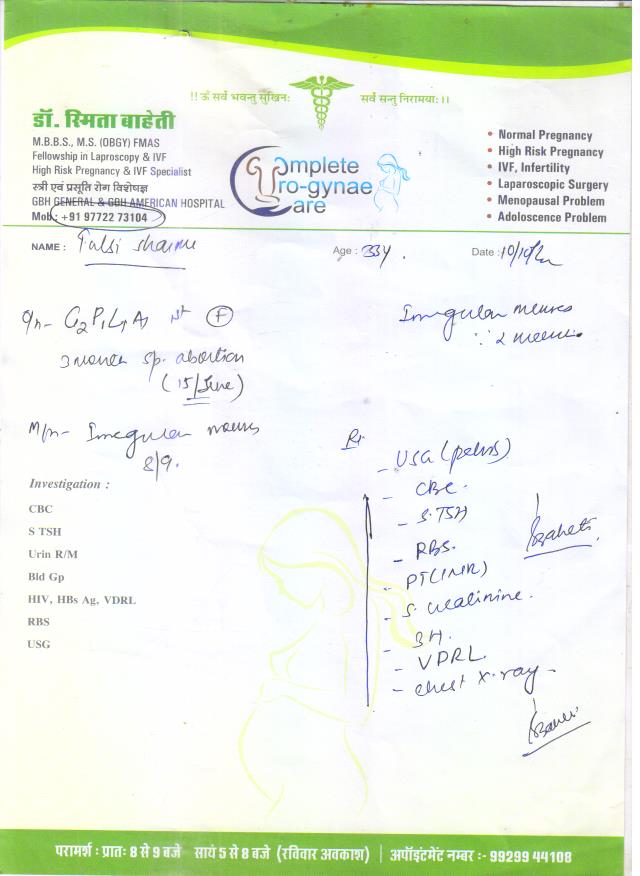 !! ॐ सर्वे भवन्तु सुखिनः सर्वे सन्तु निरामयाः ।।
डॉ. स्मिता बाहेती
M.B.B.S., M.S. (OBGY) FMAS
Fellowship in Laproscopy & IVF
High Risk Pregnancy & IVF Specialist
स्त्री एवं प्रसूति रोग विशेषज्ञ
GBH GENERAL & GBH AMERICAN HOSPITAL
Mob.: +91 97722 73104
Complete
Uro-gynae
Care
• Normal Pregnancy
• High Risk Pregnancy
• IVF, Infertility
• Laparoscopic Surgery
• Menopausal Problem
• Adoloscence Problem
NAME : Tulsi Sharma Age : 33y. Date : 10/10/
O/h- G2P1L1A1 (F)
3 month sp. abortion
(15/June)
M/h- Irregular menses
8/9.
Irregular menses
∵ 2
Investigation :
CBC
S TSH
Urin R/M
Bld Gp
HIV, HBs Ag, VDRL
RBS
USG
Rx
- USG (pelvis)
- CBC.
- S.TSH
- RBS.
- PT(INR)
- S. creatinine.
- 3H.
- VDRL.
- chest X-ray
परामर्श : प्रातः 8 से 9 बजे सायं 5 से 8 बजे (रविवार अवकाश) | अपॉइंटमेंट नम्बर :- 99299 44108